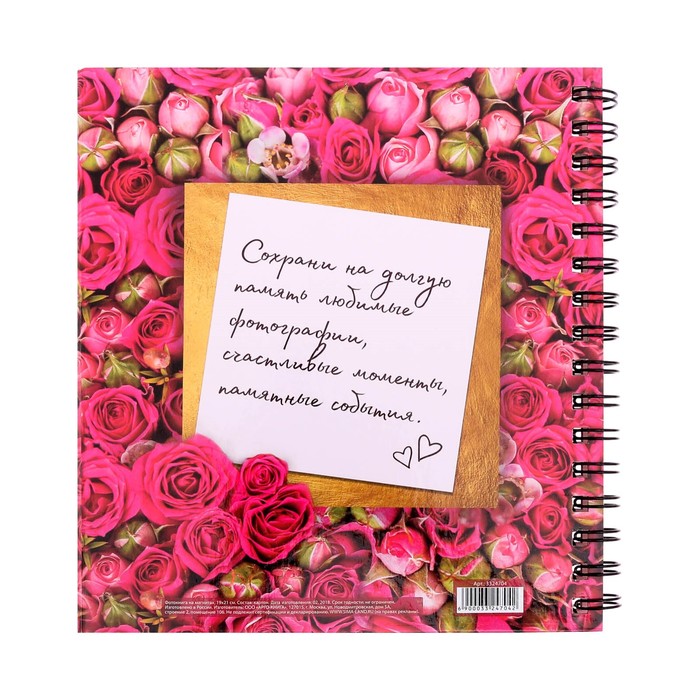 Сохрани на долгую
память любимые
фотографии,
счастливые моменты,
памятные события.
Арт. 3324704
6 900033 247042
Фотокнига на магнитах, 19х21 см. Состав: картон. Дата изготовления: 02, 2018. Срок годности не ограничен.
Изготовлено в России. Изготовитель: ООО «АРГО-КНИГА», 127015, г. Москва, ул. Новодмитровская, дом 5А,
строение 2, помещение 106. Не подлежит сертификации и декларированию. WWW.SIMA-LAND.RU (на правах рекламы)